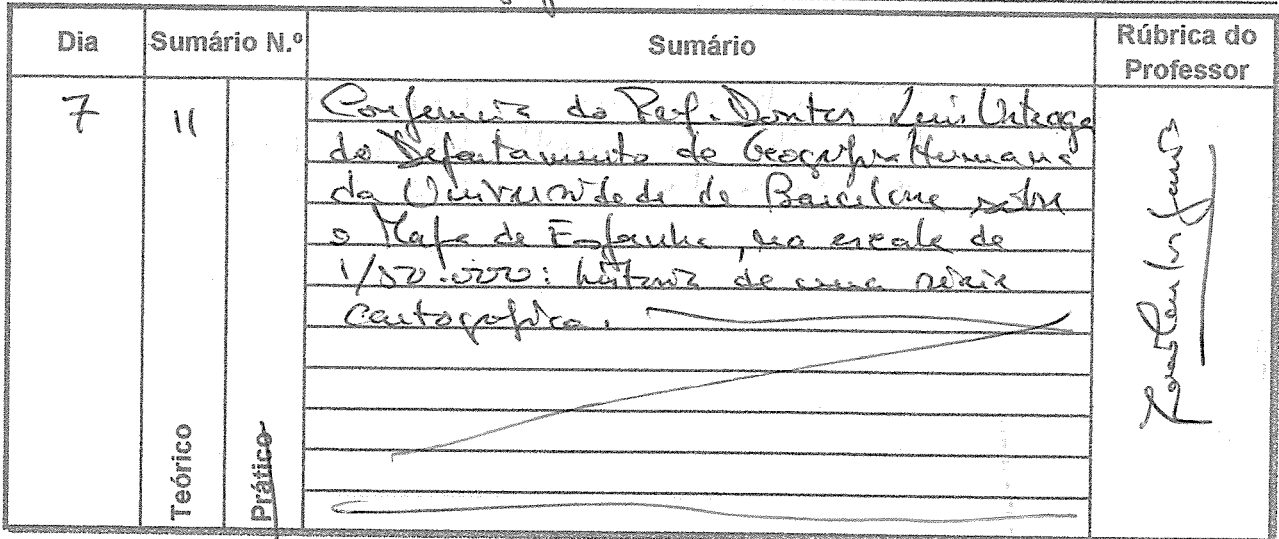 Dia
Sumário N.º
Sumário
Rúbrica do
Professor
7
11
Conferência do Prof. Doutor Luis Urteaga
do Departamento de Geografia Humana
da Universidade de Barcelona sobre
o Mapa de Espanha, na escala de
1/50.000: história de uma série
cartográfica.
Teórico
Prático